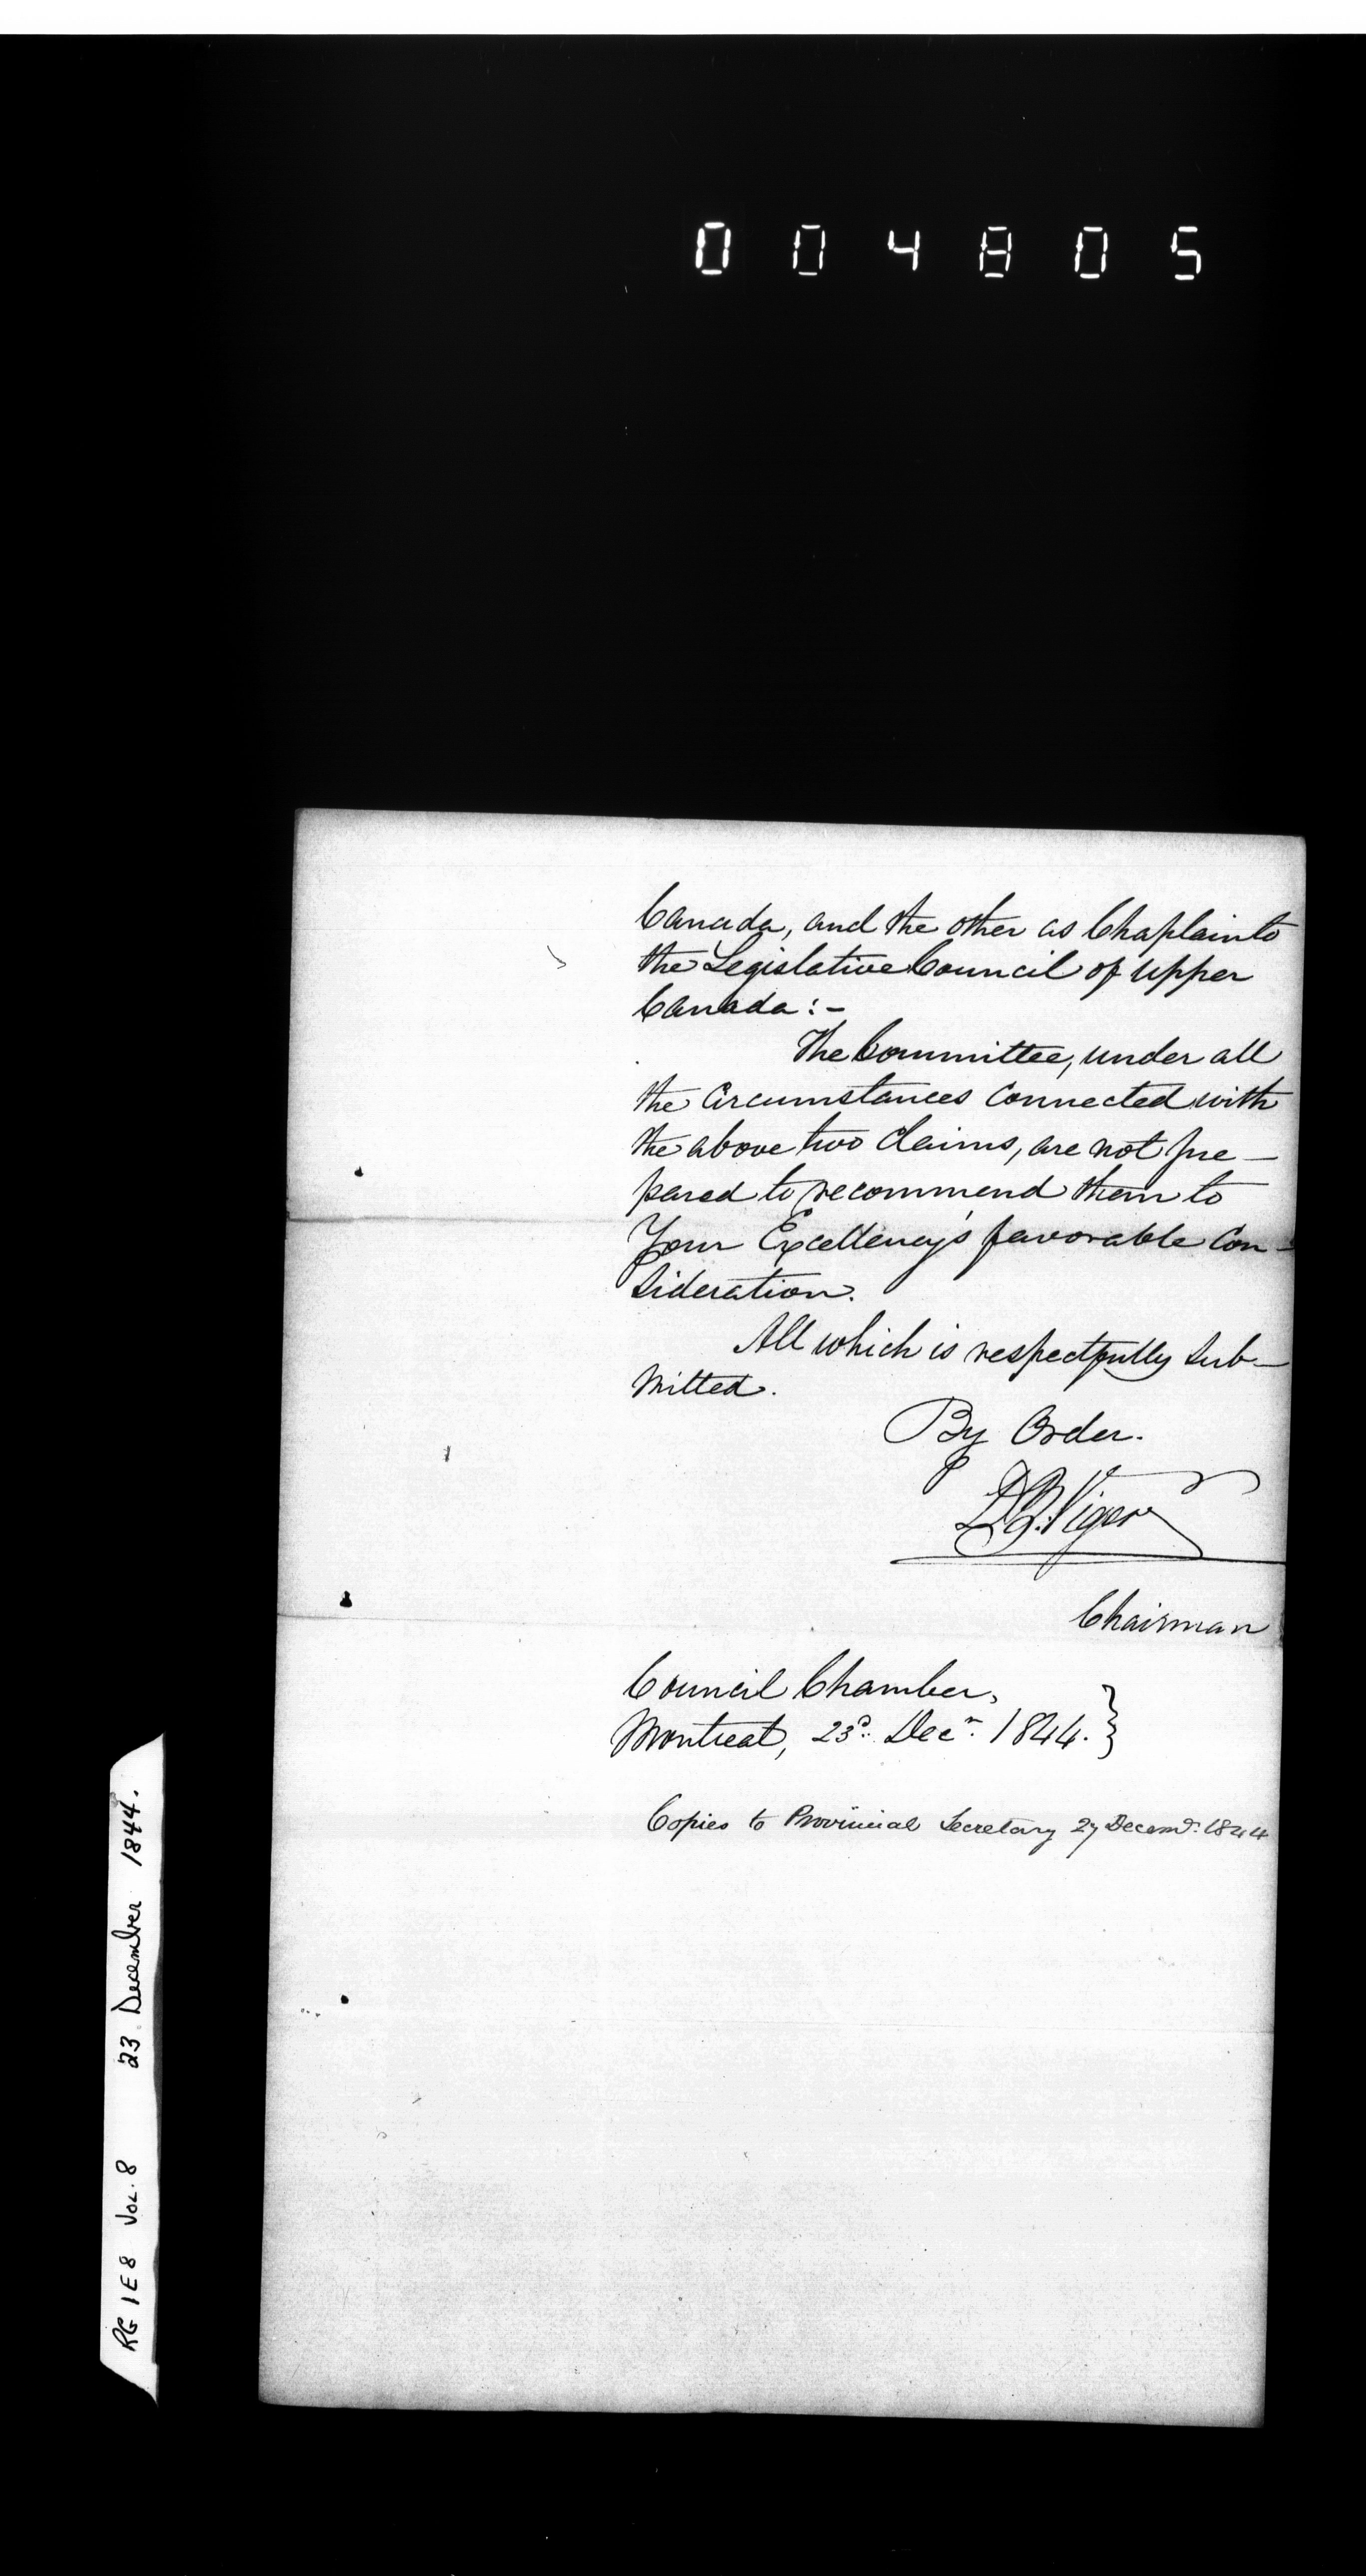 004805
Canada, and the other as Chaplain to
the Legislative Council of Upper
Canada:-
The Committee, under all
the circumstances connected with
the above two claims, are not pre-
pared to recommend them to
Your Excellency's favorable con-
sideration.
All which is respectfully sub-
mitted.
By Order.
D.B. Viger
Chairman
Council Chamber,
Montreal, 23d. Decr. 1844.
Copies to Provincial Secretary 27 Decemr. 1844
RG 1 E 8 VOL. 8 23 December 1844.